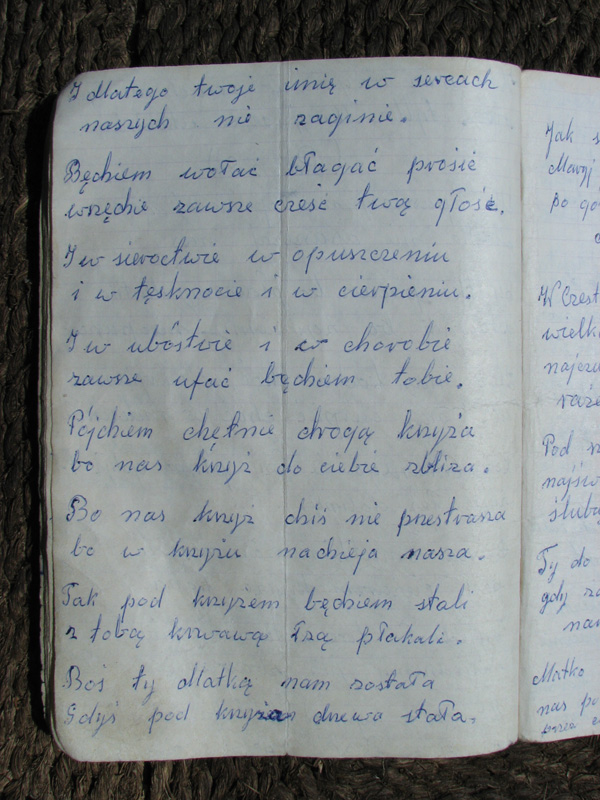 I dlatego twoje imię w sercach
naszych nie zaginie.
Będziem wołać błagać prosić
wszędzie zawsze cześć twą głość.
I w sieroctwie w opuszczeniu
i w tęsknocie i w cierpieniu.
I w ubóstwie i w chorobie
zawsze ufać będziem tobie.
Pójdziem chętnie drogą krzyża
bo nas krzyż do ciebie zbliża.
Bo nas krzyż dziś nie przestrasza
bo w krzyżu nadzieja nasza.
Tak pod krzyżem będziem stali
z tobą krwawą łzą płakali.
Boś ty Matką nam została
Gdyś pod krzyża drzewa stała.
Jak
Maryj
po
W Częst
wielk
Pod
najśw
ślub
Ty do
gdy
nam
Matko
nas po